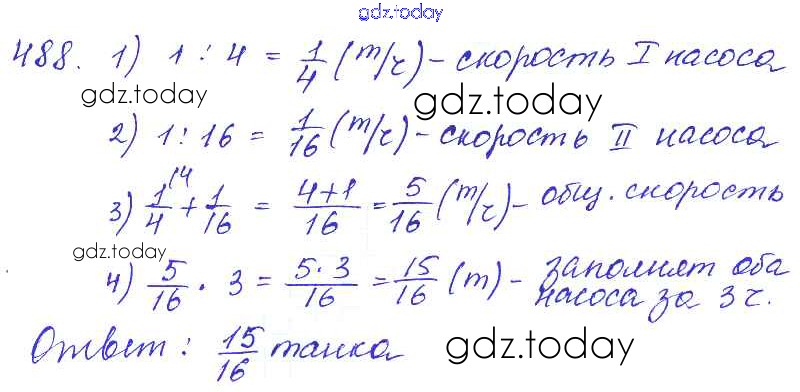 gdz.today
488. 1) 1 : 4 = 1/4 (т/ч) - скорость I насоса
gdz.today gdz.today
2) 1 : 16 = 1/16 (т/ч) - скорость II насоса
3) 1/4 (4 + 1/16 = 4+1/16 = 5/16 (т/ч) - общ. скорость
gdz.today
4) 5/16 · 3 = 5·3/16 = 15/16 (т) - заполнят оба
насоса за 3 ч.
Ответ: 15/16 танка gdz.today